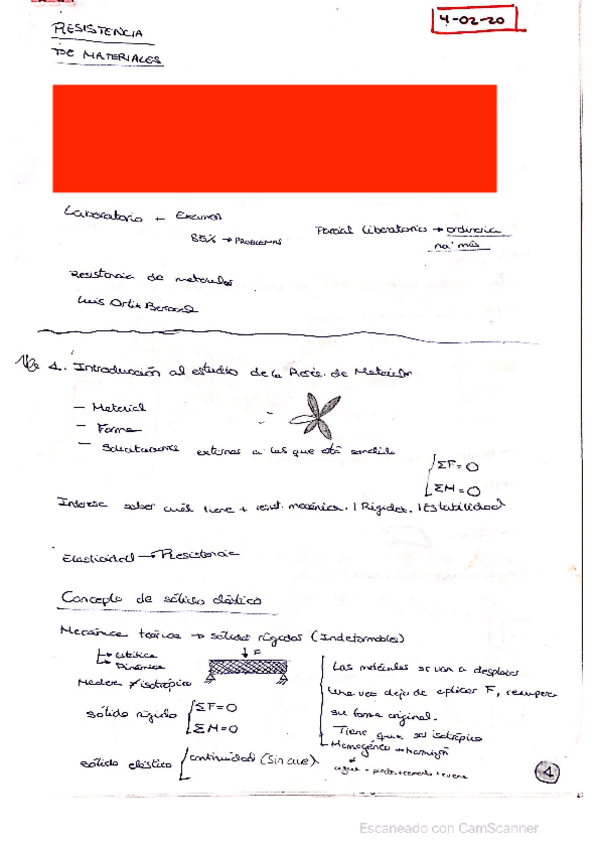 4-02-20
RESISTENCIA
DE MATERIALES
Laboratorio + Examen
85% → PROBLEMAS
Parcial liberatorio → ordinaria
na' más
Resistencia de materiales
Luis Ortiz
1. Introducción al estudio de la Resis. de Materiales
— Material
— Forma
— Solicitaciones externas a las que está sometido
ΣF = 0
ΣM = 0
Interesa saber cuál tiene + resist. mecánica. | Rigidez. | Estabilidad
Elasticidad → Resistencia
Concepto de sólido elástico
Mecánica teórica → sólidos rígidos (Indeformables)
Estática
Dinámica
F
Madera ≠ isotrópico
sólido rígido
ΣF = 0
ΣM = 0
sólido elástico
continuidad (Sin aire)
Las moléculas se van a desplazar
Una vez deja de aplicar F, recupera
su forma original.
Tiene que ser isotrópico
Homogéneo → hormigón
1
Escaneado con CamScanner